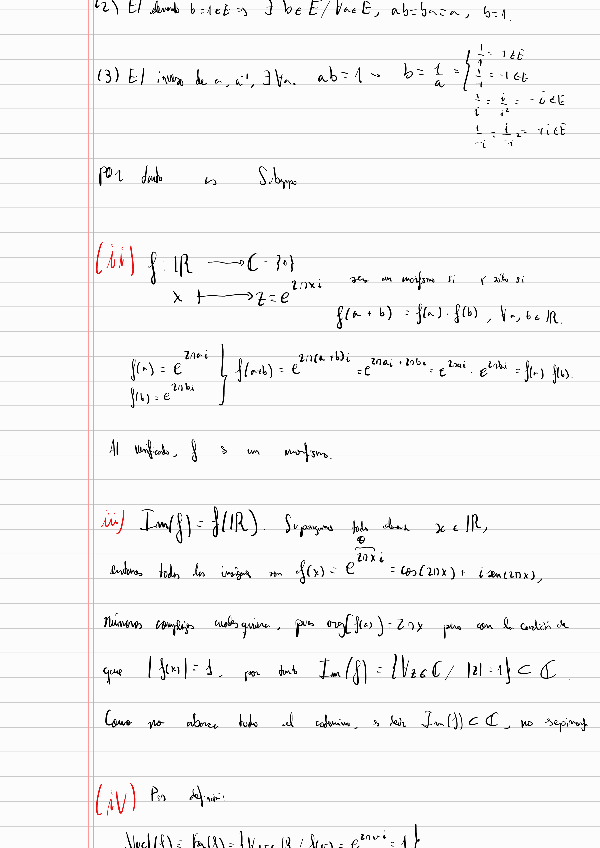 (2) El elemento b=1∈E => ∃ b∈E / ∀a∈E, ab=ba=a, b=1.
(3) El inverso de a, a⁻¹, ∃ ∀a. ab=1 → b = 1/a = { 1/1 = 1∈E
1/-1 = -1∈E
1/i = i/i² = -i∈E
1/-i = i/-i² = +i∈E
Por tanto es Subgrupo
(ii) f: ℝ → ℂ-{0}
x ↦ z = e^{2πxi} será un morfismo si y sólo si
f(a+b) = f(a)·f(b), ∀a,b∈ℝ.
f(a) = e^{2πai}
f(b) = e^{2πbi} } f(a+b) = e^{2π(a+b)i} = e^{2πai+2πbi} = e^{2πai}·e^{2πbi} = f(a)·f(b).
Al verificarlo, f es un morfismo.
iii) Im(f) = f(ℝ). Supongamos todo x∈ℝ,
entonces todas las imágenes son f(x) = e^{2πxi} = cos(2πx) + i sen(2πx),
números complejos cualesquiera, pues arg(f(x)) = 2πx pero con la condición de
que |f(x)| = 1, por tanto Im(f) = {∀z∈ℂ / |z|=1} ⊂ ℂ.
Como no abarca todo el codominio, es decir Im(f) ⊂ ℂ, no
(iv) Por definición:
Nuc(f) = Ker(f) = {∀x∈ℝ / f(x) = e^{2πxi} = 1}